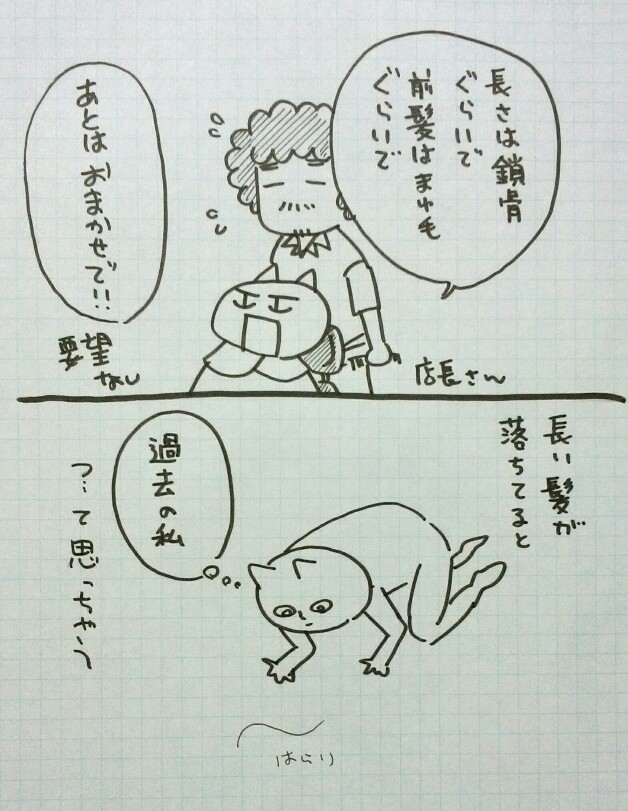 長さは鎖骨
ぐらいで
前髪はまゆ毛
ぐらいで
あとは おまかせで!!
要望
なし
店長さん
長い髪が
落ちてると
過去の私
つ…て思っちゃう
はらり